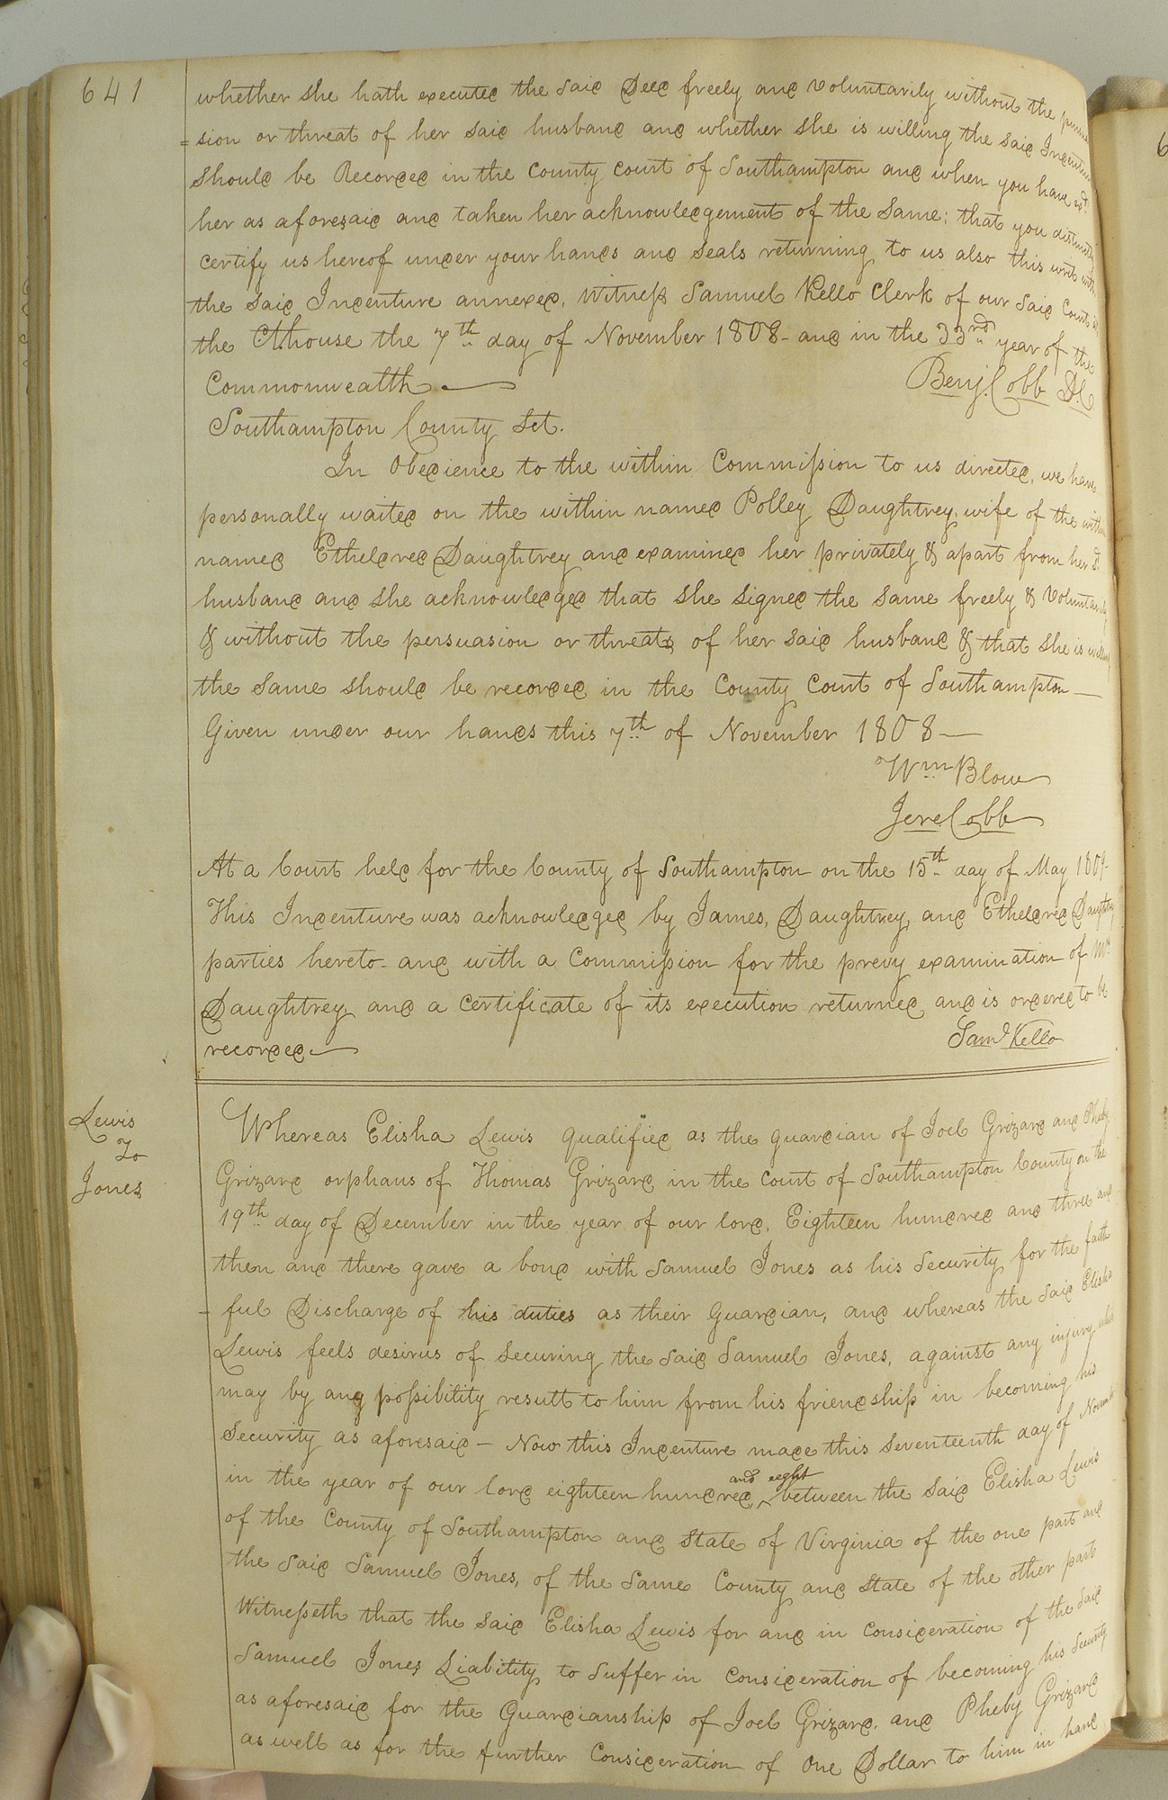 641
whether she hath executed the said Deed freely and Voluntarily without the
=sion or threat of her said husband and whether she is willing the said Indenture
should be Recorded in the County Court of Southampton and when you have
her as aforesaid and taken her acknowledgement of the Same; that you distinctly
certify us hereof under your hands and seals returning to us also this writ with
the said Indenture annexed. Witness Samuel Kello Clerk of our said Court at
the Cthouse the 7th day of November 1808 - and in the 33rd year of the
Commonwealth
Benj. Cobb D.C
Southampton County Sct.
In Obedience to the within Commission to us directed, we have
personally waited on the within named Polley Daughtrey, wife of the within
named Etheldred Daughtrey and examined her privately & apart from her sd.
husband and she acknowledged that she signed the same freely & Voluntarily
& without the persuasion or threats of her said husband & that she is willing
the same should be recorded in the County Court of Southampton —
Given under our hands this 7th of November 1808 —
Wm Blow
Jere Cobb
At a Court held for the County of Southampton on the 15th day of May 1809-
This Indenture was acknowledged by James, Daughtrey, and Etheldred Daughtrey
parties hereto - and with a Commission for the prevy examination of Mrs
Daughtrey and a certificate of its execution returned and is ordered to be
recorded —
Saml Kello
Lewis
To
Jones
Whereas Elisha Lewis qualified as the guardian of Joel Grizard and Pheby
Grizard orphans of Thomas Grizard in the Court of Southampton County on the
19th day of December in the year of our lord, Eighteen hundred and three and
then and there gave a bond with Samuel Jones as his Security for the faith
- ful Discharge of his duties as their Guardian, and whereas the said Elisha
Lewis feels desirus of Securing the said Samuel Jones, against any injury which
may by any possibility result to him from his friendship in becoming his
Security as aforesaid — Now this Indenture made this seventeenth day of November
in the year of our lord eighteen hundred and eeght between the said Elisha Lewis
of the County of Southampton and State of Virginia of the one part and
the said Samuel Jones, of the Same County and State of the other part
Witnesseth that the said Elisha Lewis for and in consideration of the said
Samuel Jones Liability to Suffer in consideration of becoming his Security
as aforesaid for the Guardianship of Joel Grizard. and Pheby Grizard
as well as for the further Consideration of One Dollar to him in hand